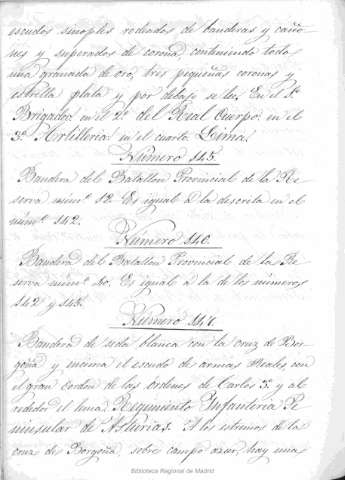 escudos simples rodeados de banderas y caño-
nes y superados de corona, conteniendo todo
una granada de oro, tres pequeñas coronas y
estrella plata y por debajo se lee. En el 1º
Brigada en el 2º del Real Cuerpo en el
3º Artilleria en el cuarto Lima.
Número 145.
Bandera del Batallon Provincial de la Re-
serva núm.º 12. Es igual á la descrita en el
núm.º 142.
Número 146.
Bandera del Batallon Provincial de la Re
serva núm.º 40. Es igual á la de los números
142 y 145.
Número 147.
Bandera de seda blanca con la cruz de Bor-
goña y encima el escudo de armas Reales, con
el gran Cordon de las ordenes de Carlos 3º y al
rededor el lema Regimiento Infanteria Pe
ninsular de Asturias. A los estremos de la
cruz de Borgoña, sobre campo azur, hay una
Biblioteca Regional de Madrid